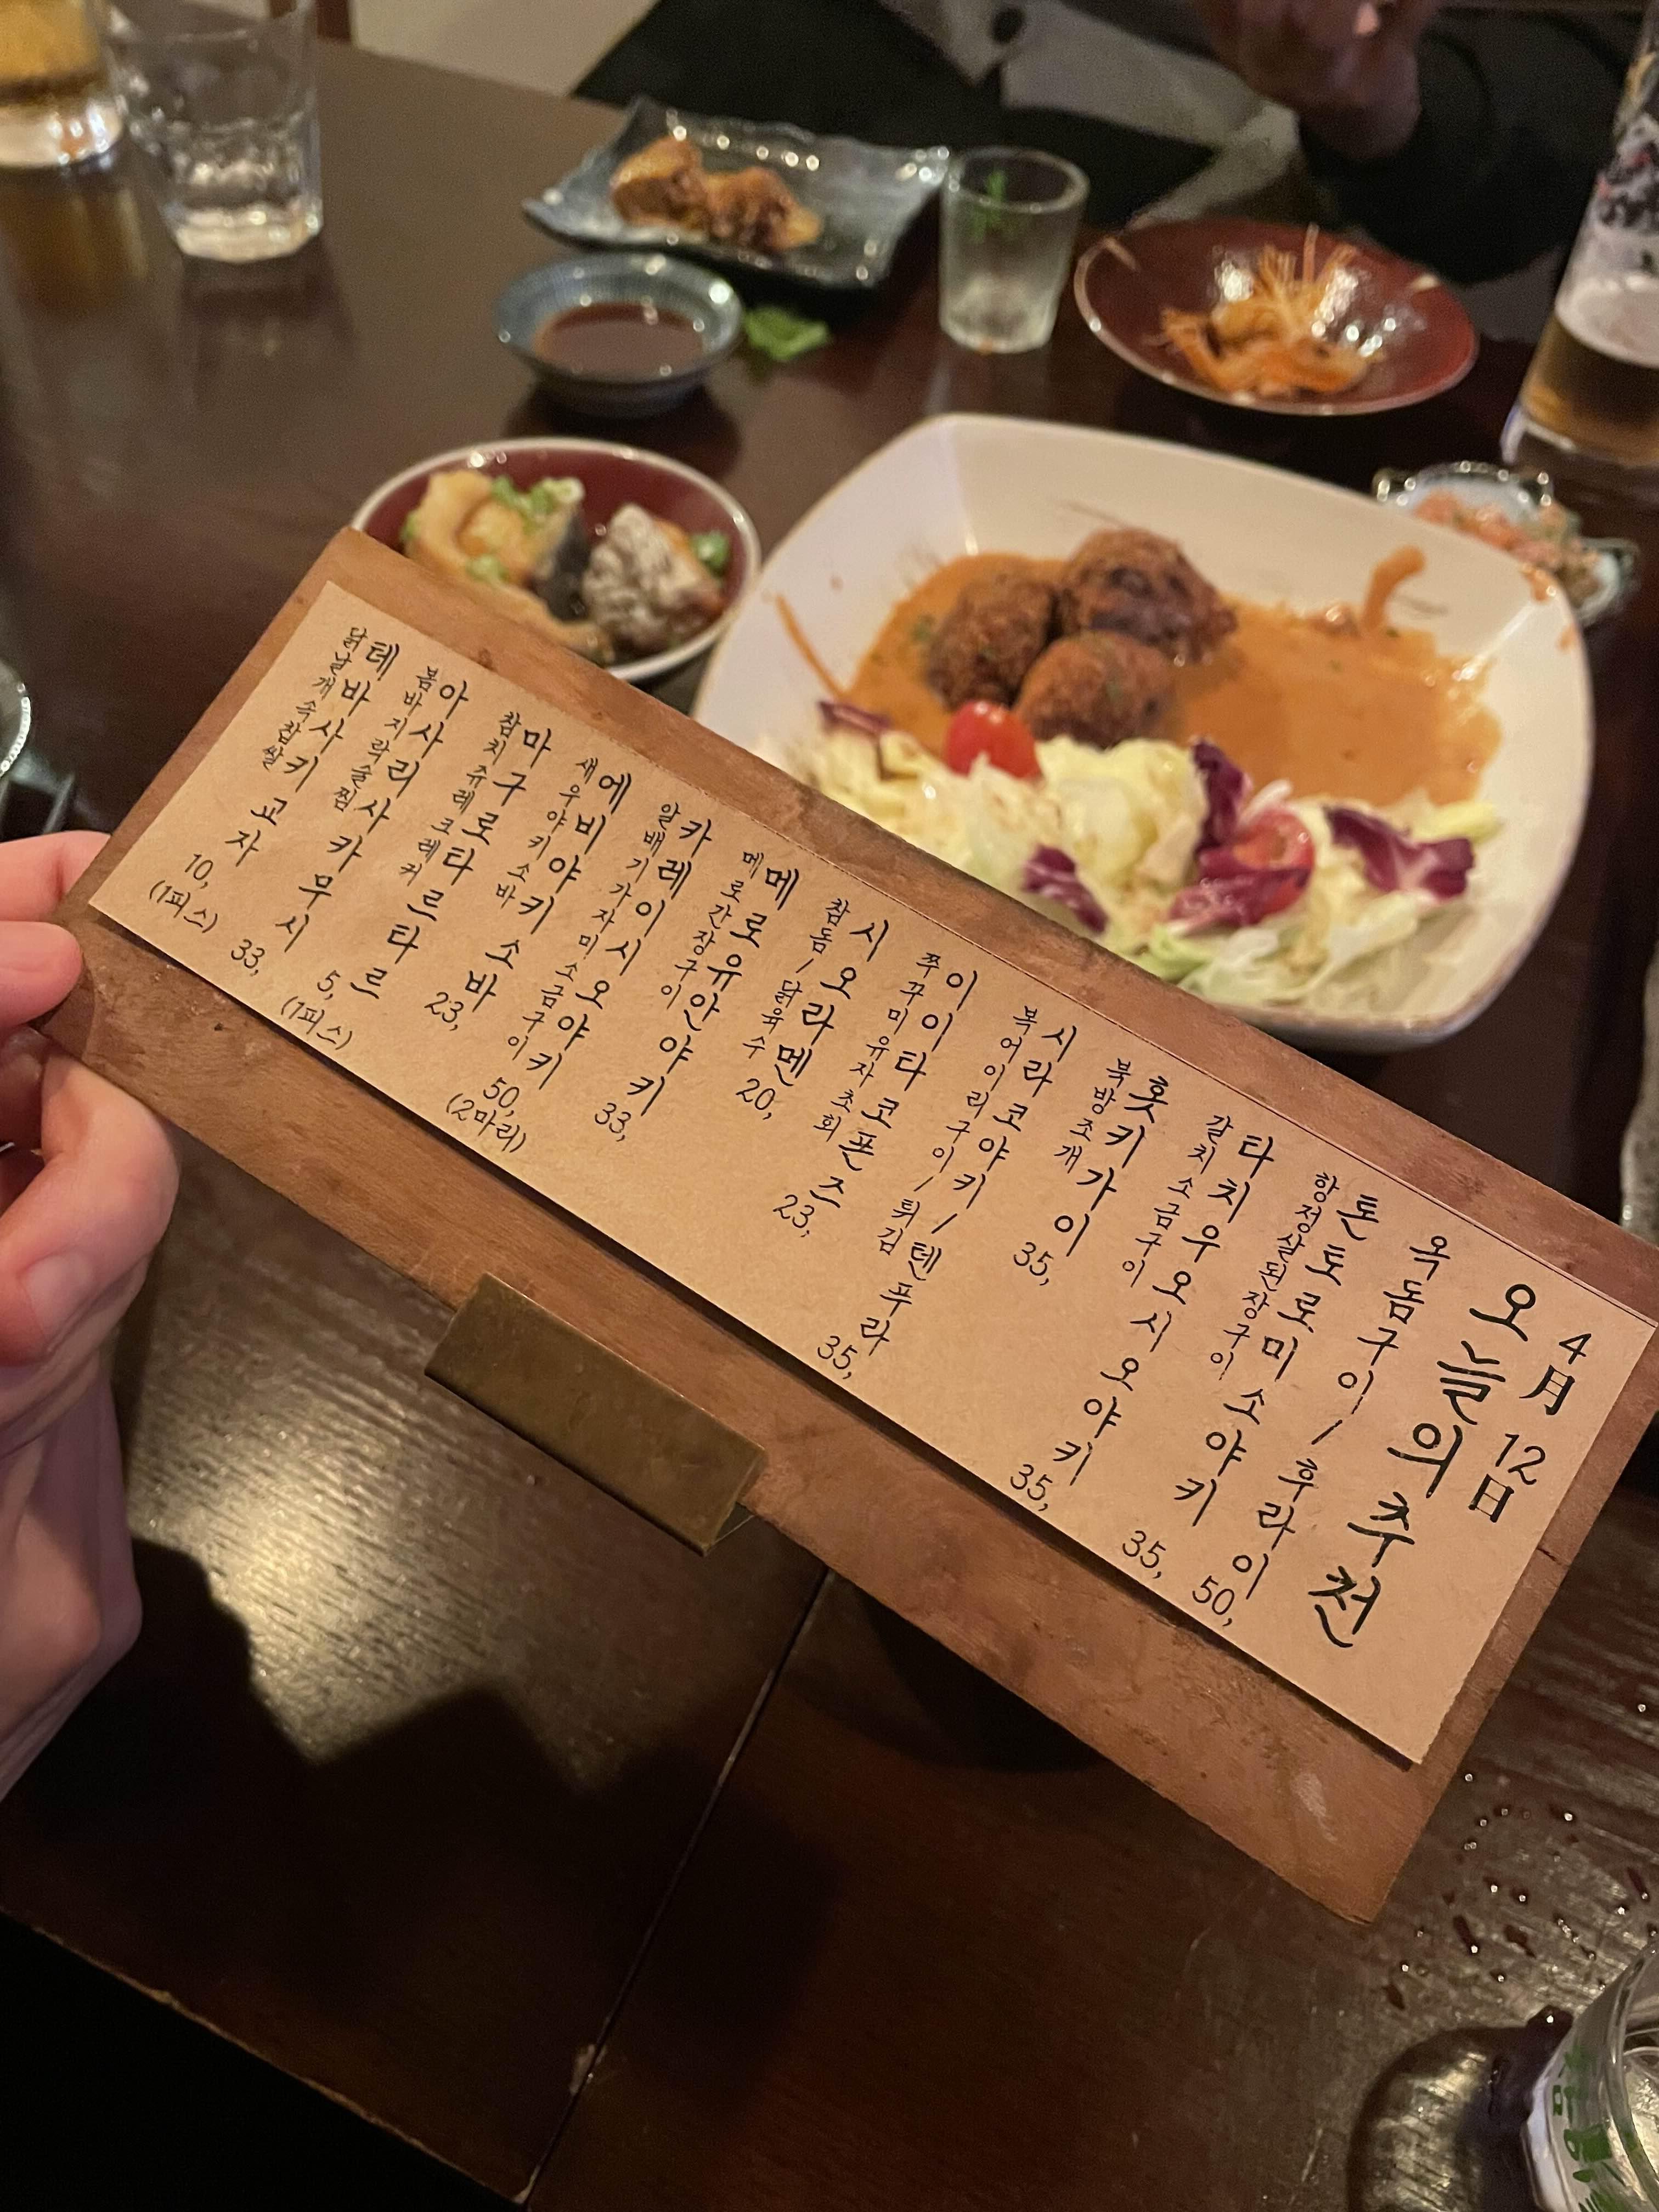 4月 12日
오늘의 추천
옥돔구이/후라이 50,
톤토로미소야키 35,
항정살된장구이
타치우오시오야키 35,
갈치소금구이
홋키가이 35,
북방조개
시라코야키/텐푸라 35,
복어이리구이/튀김
이이타코폰즈 23,
쭈꾸미유자초회
시오라멘 20,
참돔/닭육수
메로유안야키 33,
메로간장구이
카레이시오야키 50,
(2마리)
알배기가자미소금구이
에비야키소바 23,
새우야키소바
마구로타르타르 5,
(1피스)
참치쥬레크레커
아사리사카무시 33,
봄바지락술찜
테바사키교자 10,
(1피스)
닭날개속찹쌀